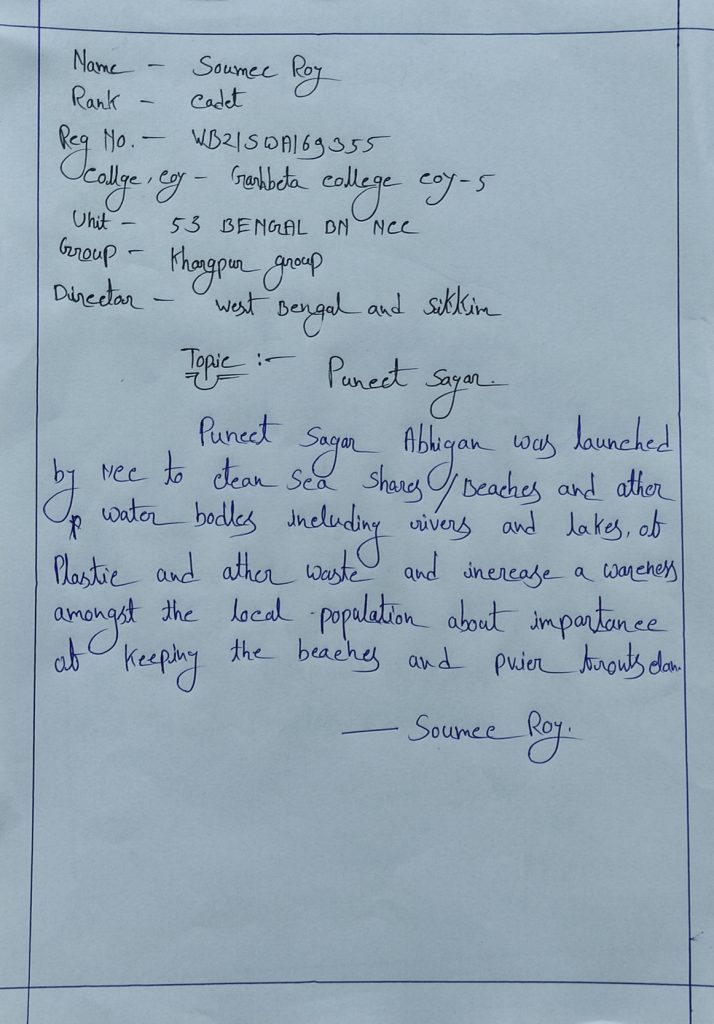 Name - Soumee Roy
Rank - cadet
Reg No. - WB21SWA169355
Collge, coy - Garhbeta college coy-5
Unit - 53 BENGAL BN NCC
Group - Khargpur group
Director - West Bengal and Sikkim
Topic :- Puneet Sagar.
Puneet Sagar Abhigan was launched
by NCC to clean Sea Shares/Beaches and other
water bodies including rivers and lakes, of
Plastic and other waste and increase a wareness
amongst the local population about importance
of Keeping the beaches and
- Soumee Roy.